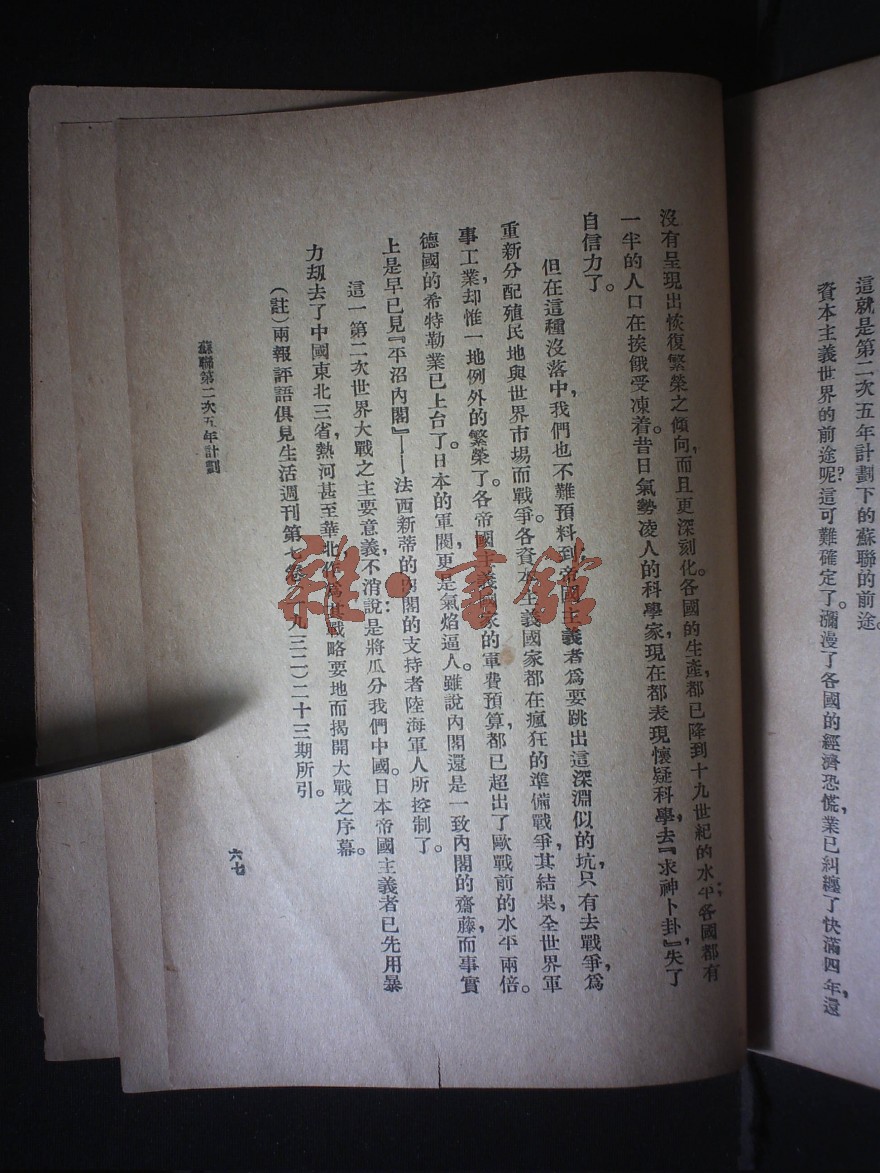 這就是第二次五年計劃下的蘇聯的前途。
資本主義世界的前途呢？這可難確定了。瀰漫了各國的經濟恐慌，業已糾纏了快滿四年，還
沒有呈現出恢復繁榮之傾向，而且更深刻化。各國的生產，都已降到十九世紀的水平；各國都有
一半的人口在挨餓受凍着。昔日氣勢凌人的科學家，現在都表現懷疑科學，去『求神卜卦』，失了
自信力了。
但在這種沒落中，我們也不難預料到帝國主義者為要跳出這深淵似的坑，只有去戰爭，為
重新分配殖民地與世界市場而戰爭。各資本主義國家都在瘋狂的準備戰爭，其結果，全世界軍
事工業，却惟一地例外的繁榮了。各帝國主義國家的軍費預算，都已超出了歐戰前的水平兩倍。
德國的希特勒業已上台了。日本的軍閥更是氣焰逼人。雖說內閣還是一致內閣的齋藤，而事實
上是早已見『平沼內閣』——法西新蒂的內閣的支持者陸海軍人所控制了。
這一第二次世界大戰之主要意義，不消說：是將瓜分我們中國。日本帝國主義者已先用暴
力刼去了中國東北三省，熱河甚至華北作為其戰略要地而揭開大戰之序幕。
（註）兩報評語俱見生活週刊第七卷（一九三二）二十三期所引。
蘇聯第二次五年計劃
六七
雜·書館